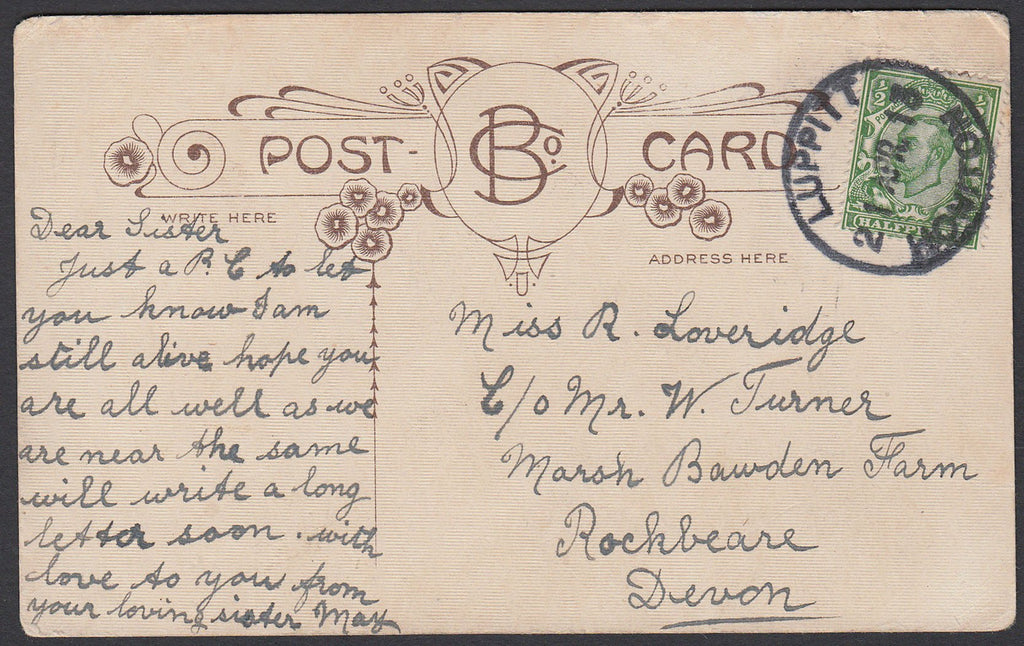 POST CARD
B Co.
WRITE HERE
ADDRESS HERE
LUPPITT
HONITON
21 AP 13
HALFPENNY
Dear Sister
Just a P. C to let
you know I am
still alive hope you
are all well as we
are near the same
will write a long
letter soon. with
love to you from
your loving sister May
Miss R. Loveridge
C/o Mr. W. Turner
Marsh Bawden Farm
Rockbeare
Devon